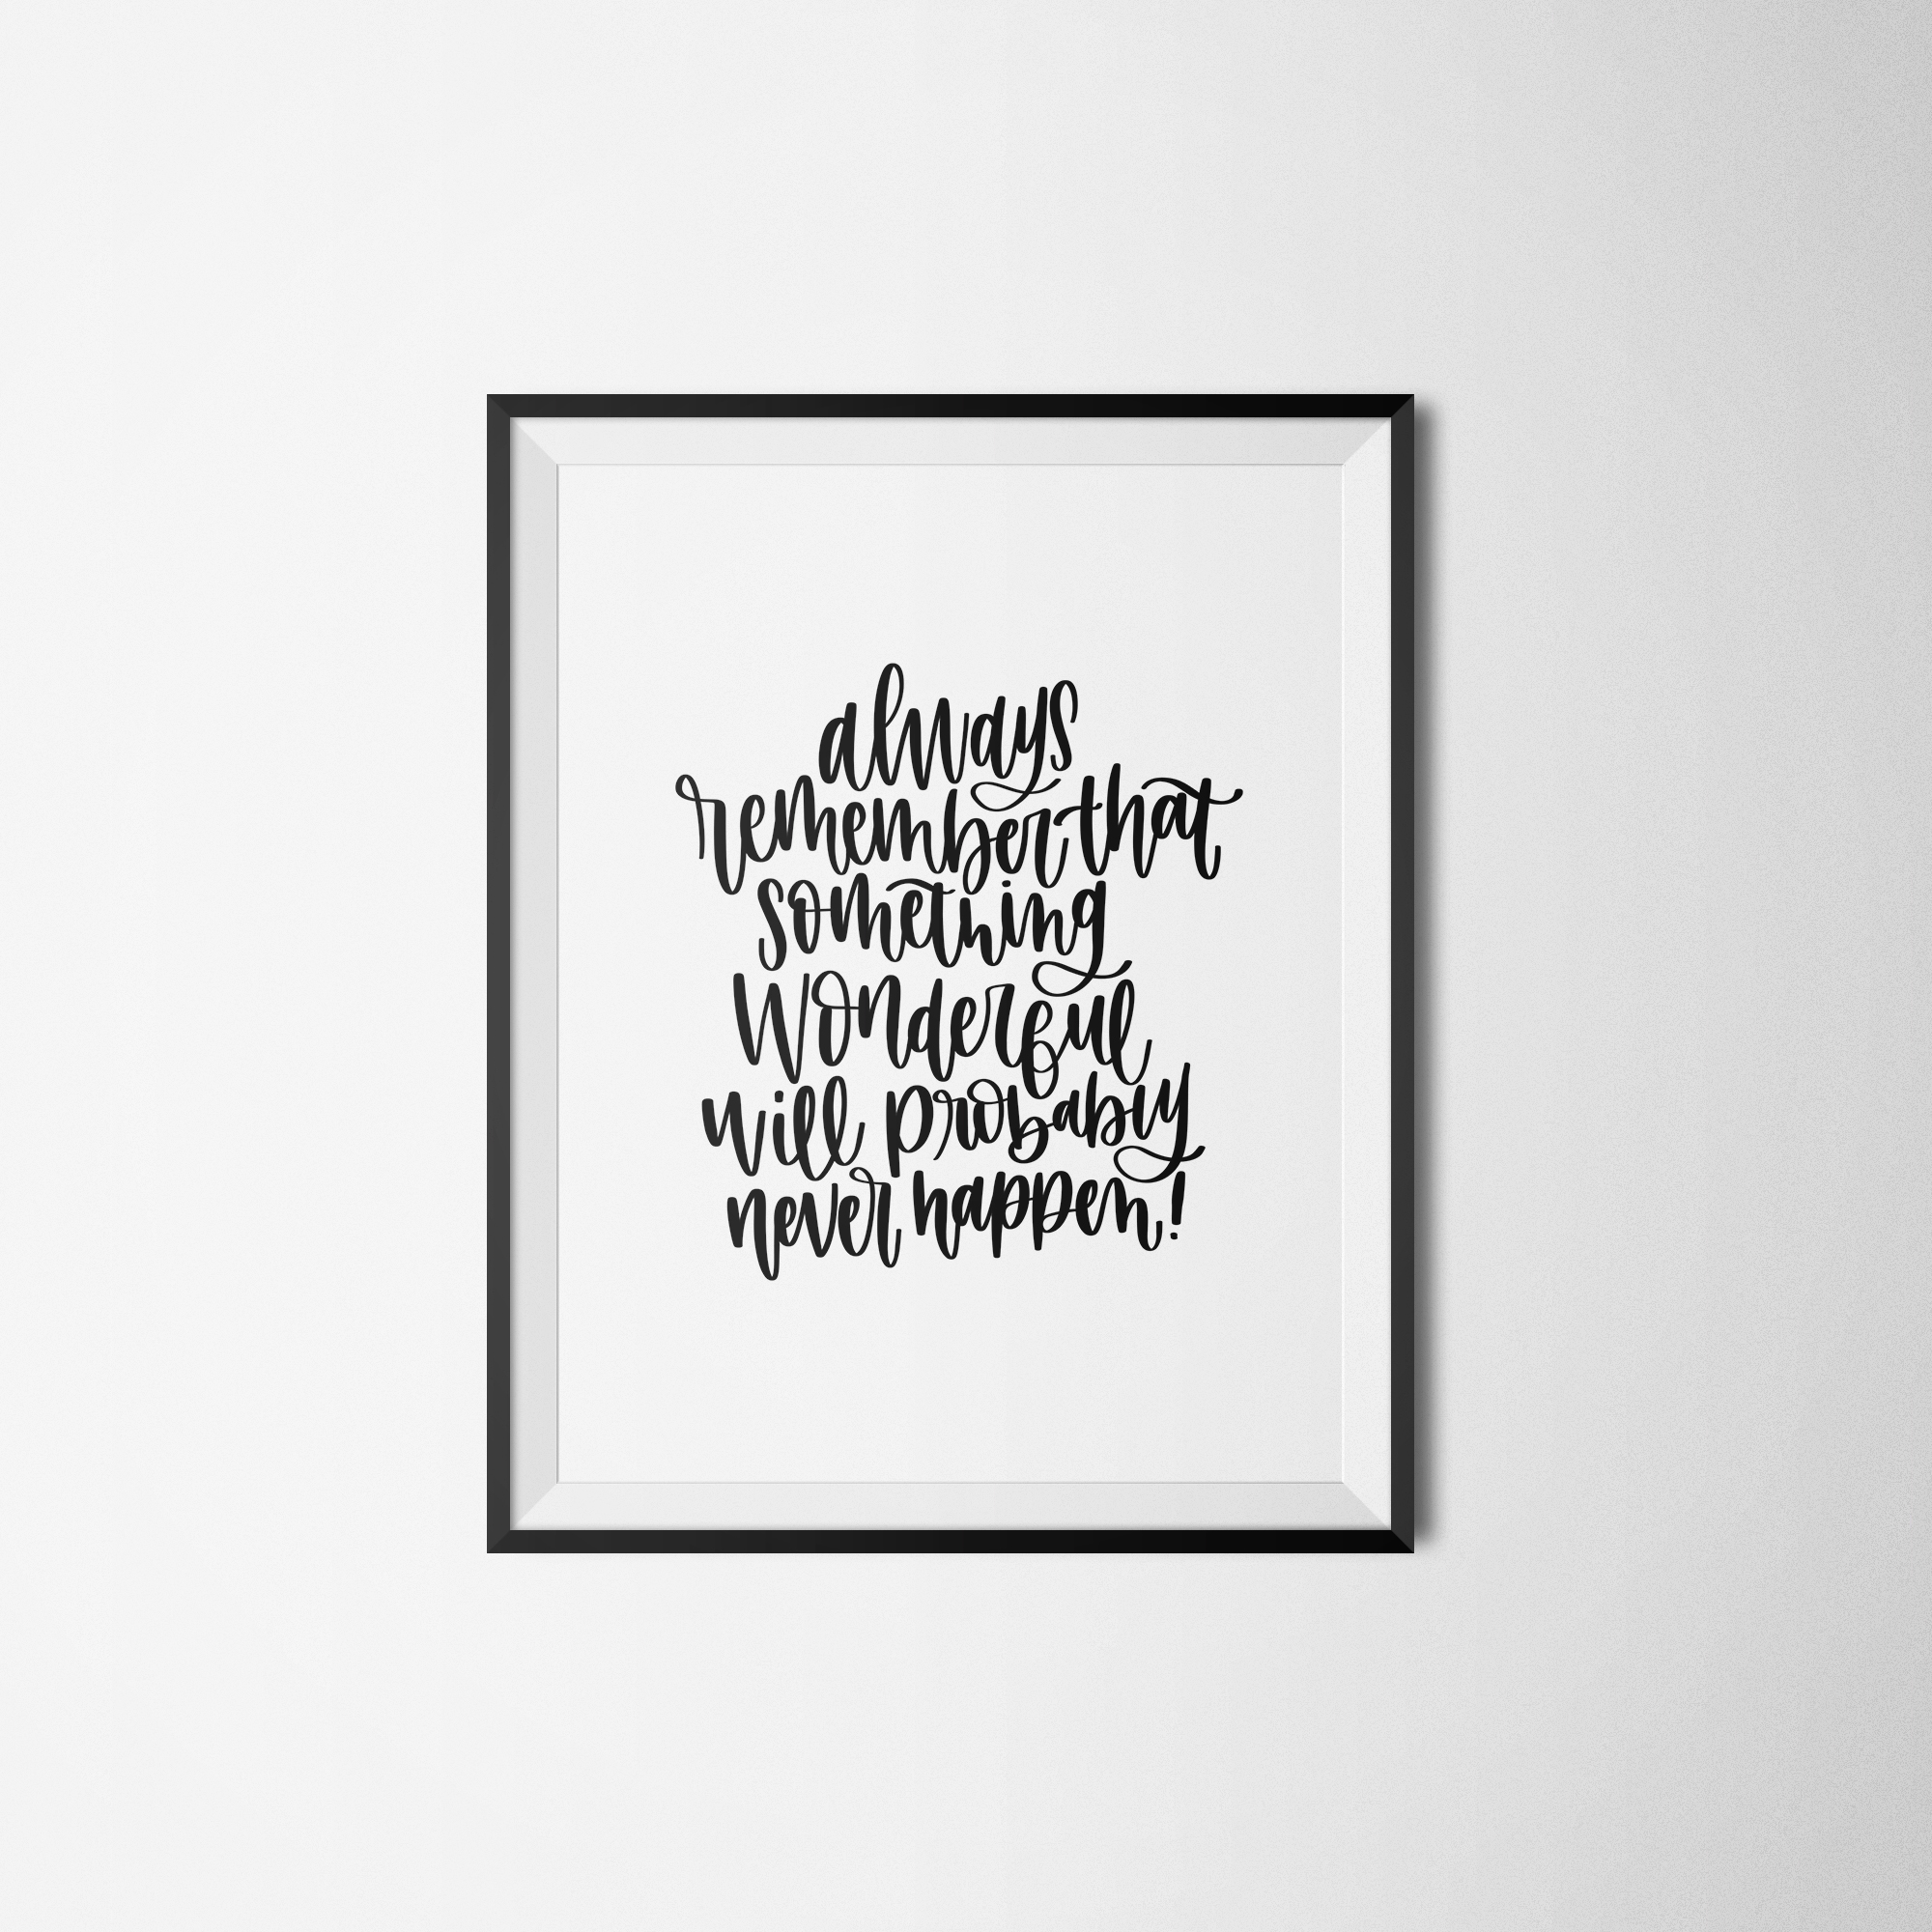 always
remember that
something
wonderful
will probably
never happen!